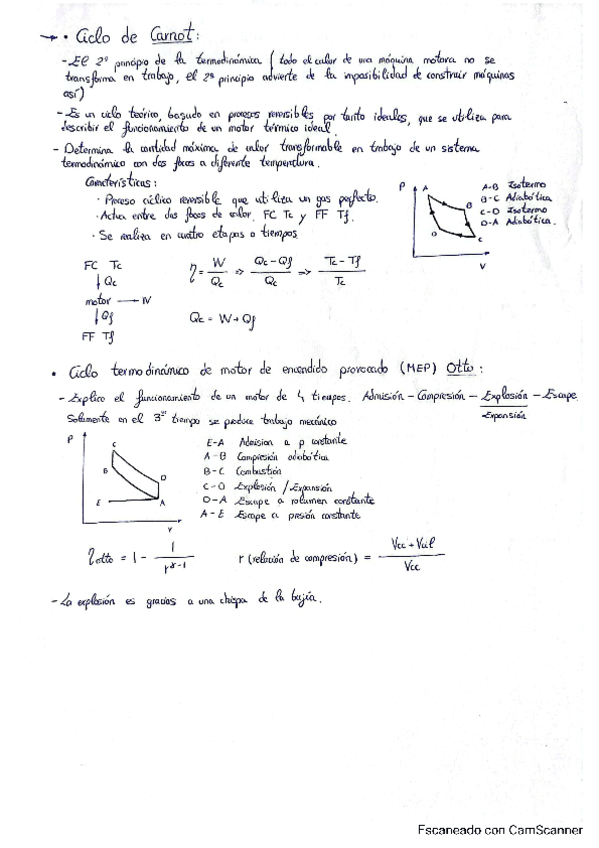 → • Ciclo de Carnot:
- El 2º principio de la termodinámica (todo el calor de una máquina motora no se
transforma en trabajo, el 2º principio advierte de la imposibilidad de construir máquinas
así)
- Es un ciclo teórico, basado en procesos reversibles por tanto ideales, que se utiliza para
describir el funcionamiento de un motor térmico ideal.
- Determina la cantidad máxima de calor transformable en trabajo de un sistema
termodinámico con dos focos a diferente temperatura.
Características:
· Proceso cíclico reversible que utiliza un gas perfecto.
· Actua entre dos focos de calor. FC Tc y FF Tf.
· Se realiza en cuatro etapas o tiempos
P A B C D V
A-B Isotermo
B-C Adiabática
C-D Isotermo
D-A Adiabática.
FC Tc
↓ Qc
motor → W
↓ Qf
FF Tf
η = W / Qc => Qc - Qf / Qc => Tc - Tf / Tc
Qc = W + Qf
• Ciclo termodinámico de motor de encendido provocado (MEP) Otto:
- Explica el funcionamiento de un motor de 4 tiempos. Admisión - Compresión - Explosión - Escape.
Expansión
Solamente en el 3er tiempo se produce trabajo mecánico
P C B D E A V
E-A Admision a p constante
A-B Compresión adiabática
B-C Combustión
C-D Explosión / Expansión
D-A Escape a volumen constante
A-E Escape a presión constante
η otto = 1 - 1 / r^γ-1
r (relación de compresión) = Vcc + Vcil / Vcc
- La explosión es gracias a una chispa de la bujía.
Escaneado con CamScanner